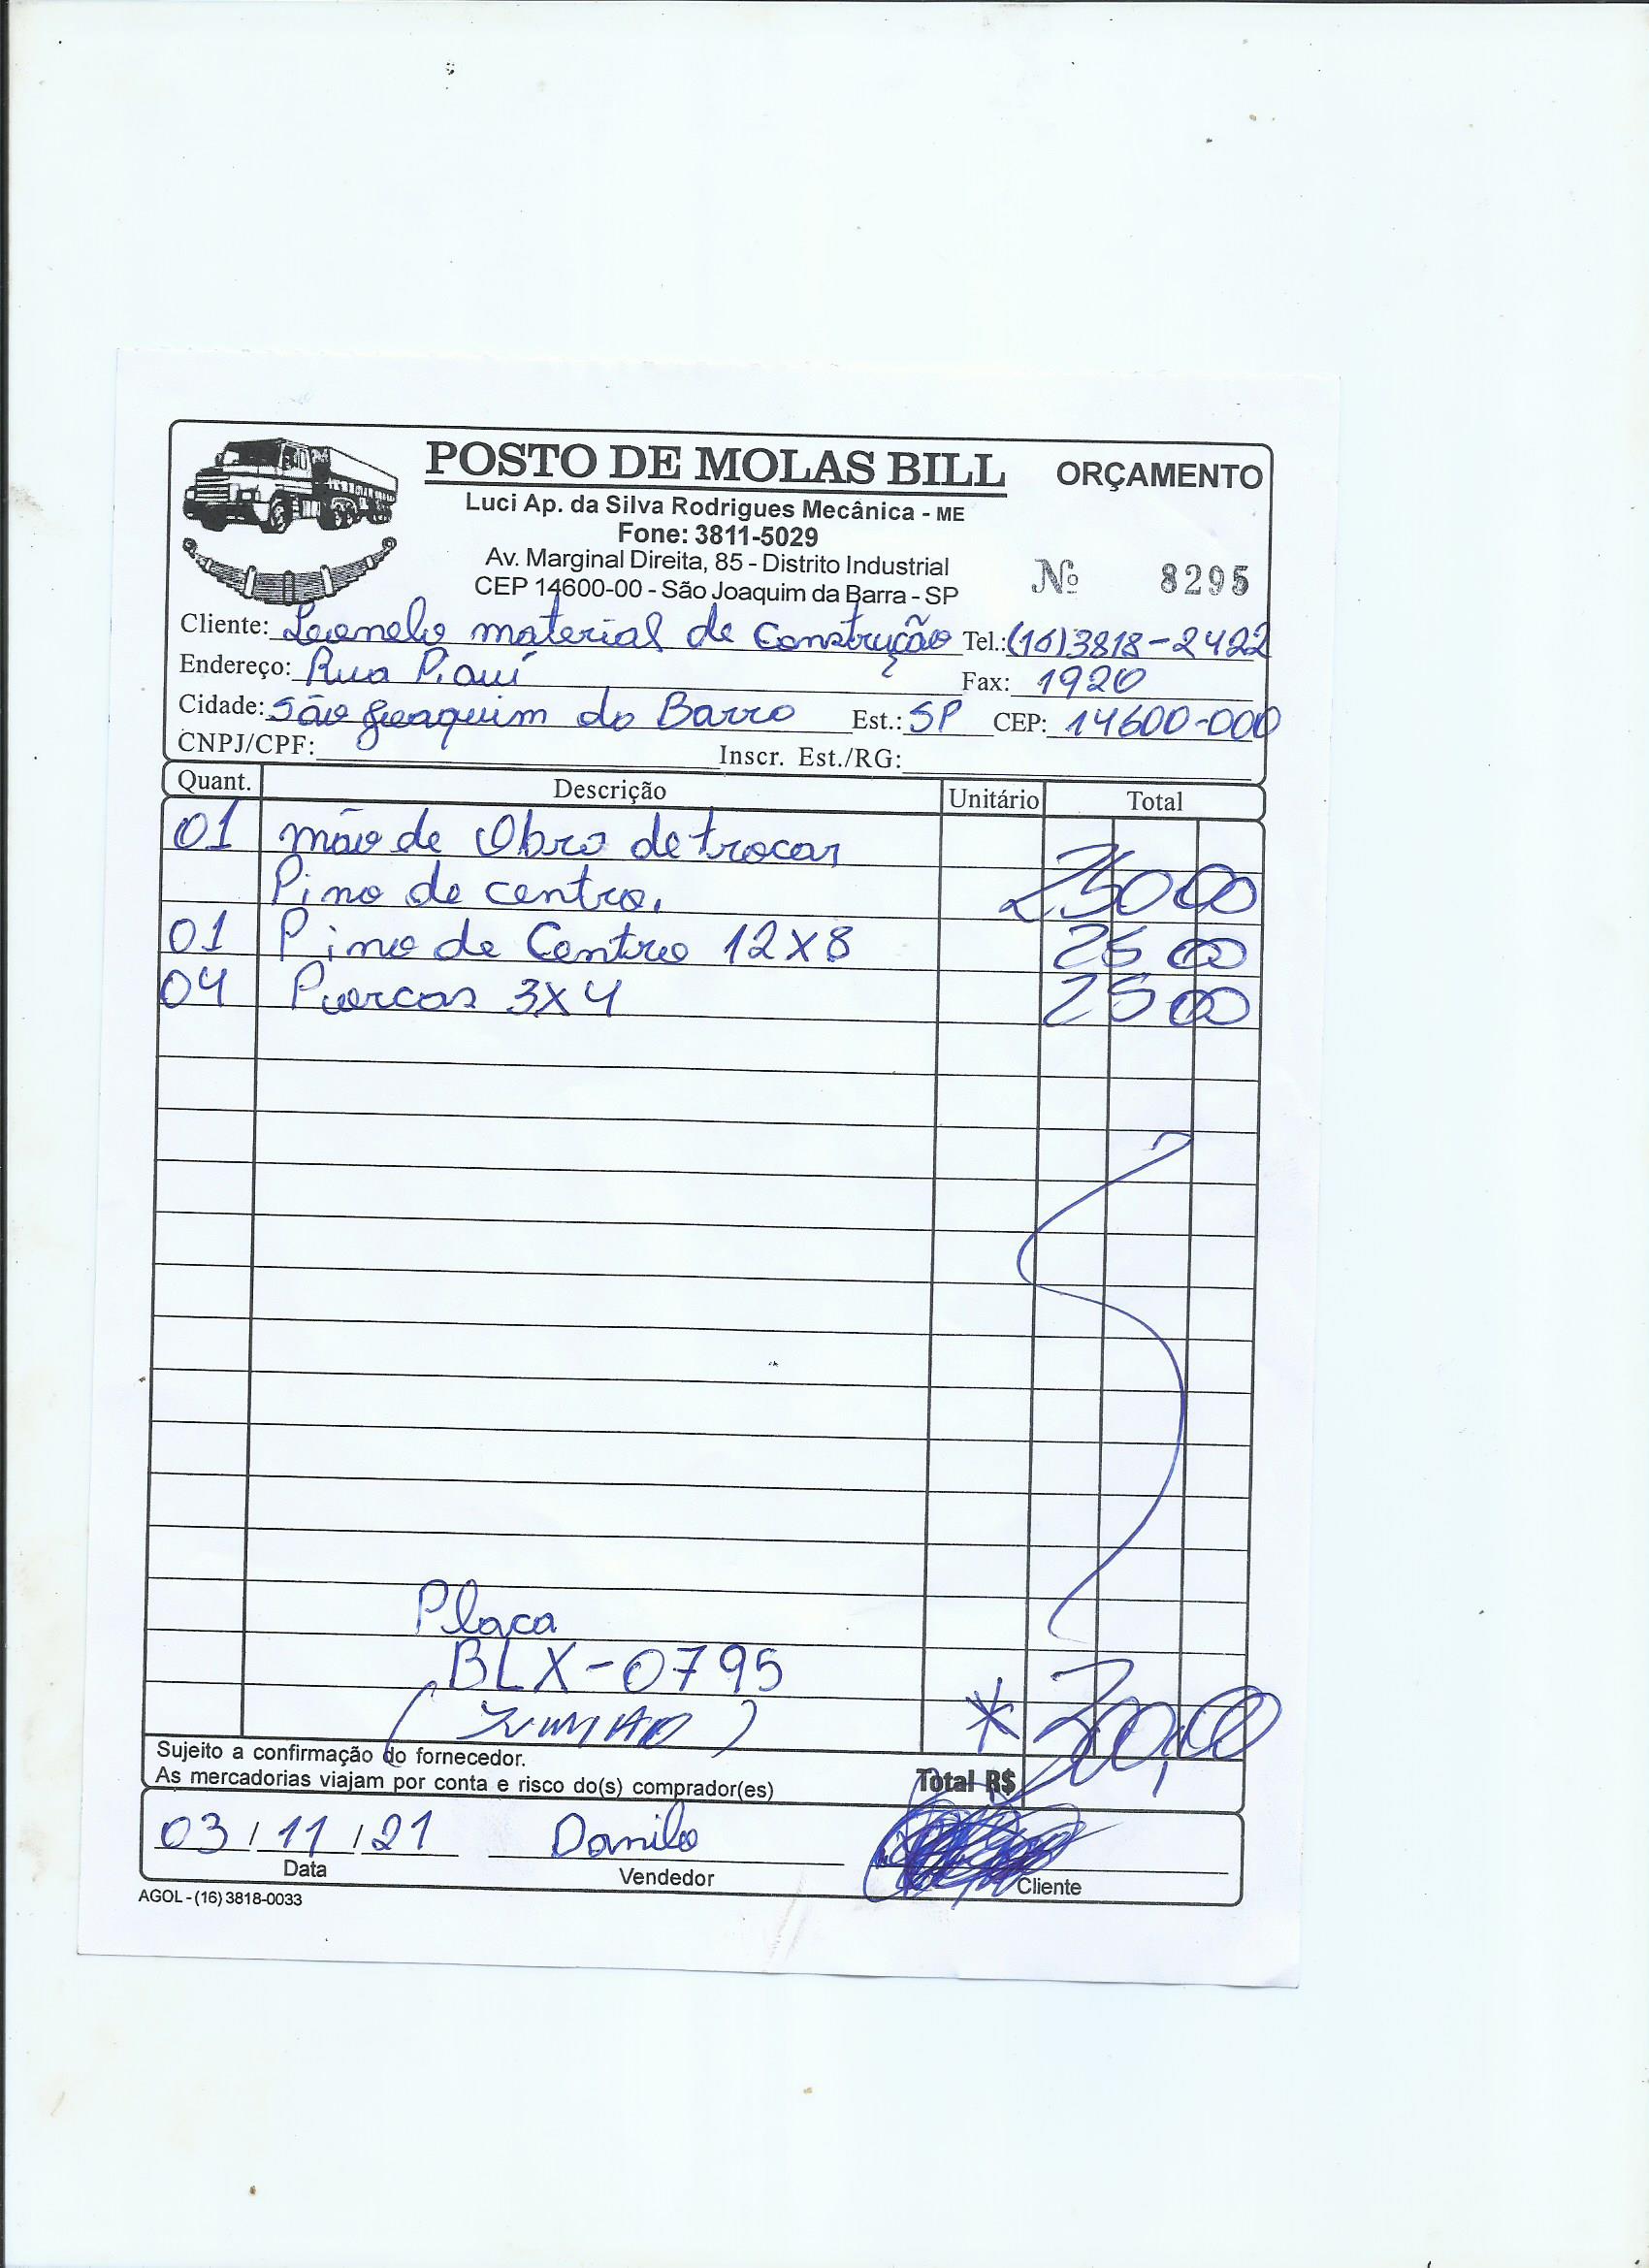 POSTO DE MOLAS BILL ORÇAMENTO
Luci Ap. da Silva Rodrigues Mecânica - ME
Fone: 3811-5029
Av. Marginal Direita, 85 - Distrito Industrial
CEP 14600-00 - São Joaquim da Barra - SP
Nº 8295
Cliente: material de Construção Tel.: (16)3818-2422
Endereço: Rua Piauí Fax: 1920
Cidade: São Joaquim da Barra Est.: SP CEP: 14600-000
CNPJ/CPF: Inscr. Est./RG:
Quant. Descrição Unitário Total
01 mão de Obra de trocar
Pino de centro. 250 00
01 Pino de Centro 12X8 25 00
04 Puercas 3X4 25 00
Placa
BLX-0795
* 300,00
Sujeito a confirmação do fornecedor.
As mercadorias viajam por conta e risco do(s) comprador(es) Total R$
03 / 11 / 21 Danilo
Data Vendedor Cliente
AGOL - (16) 3818-0033